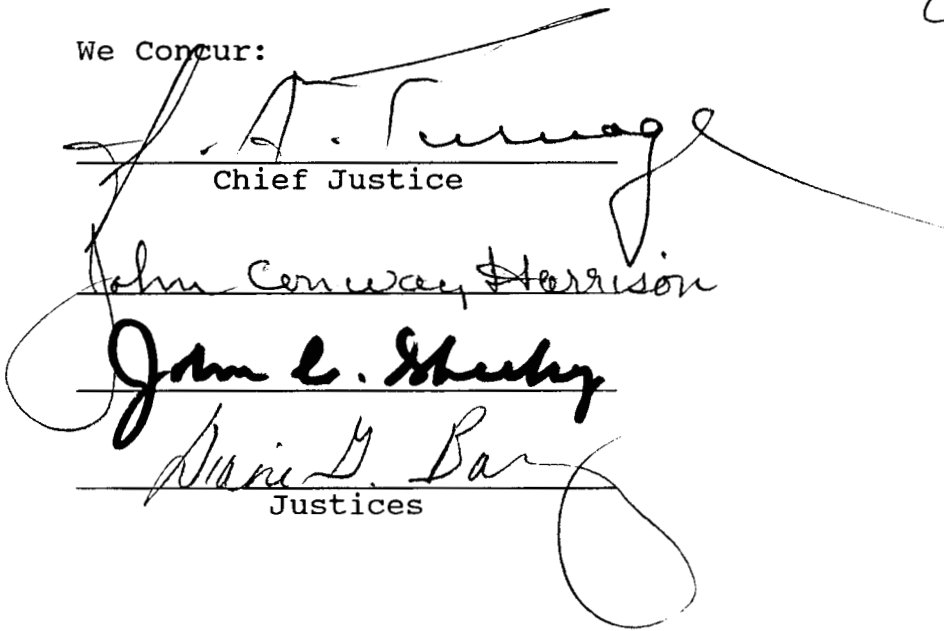 We Concur:
J. A. Turnage
Chief Justice
John Conway Harrison
John C. Sheehy
Diane G. Barz
Justices